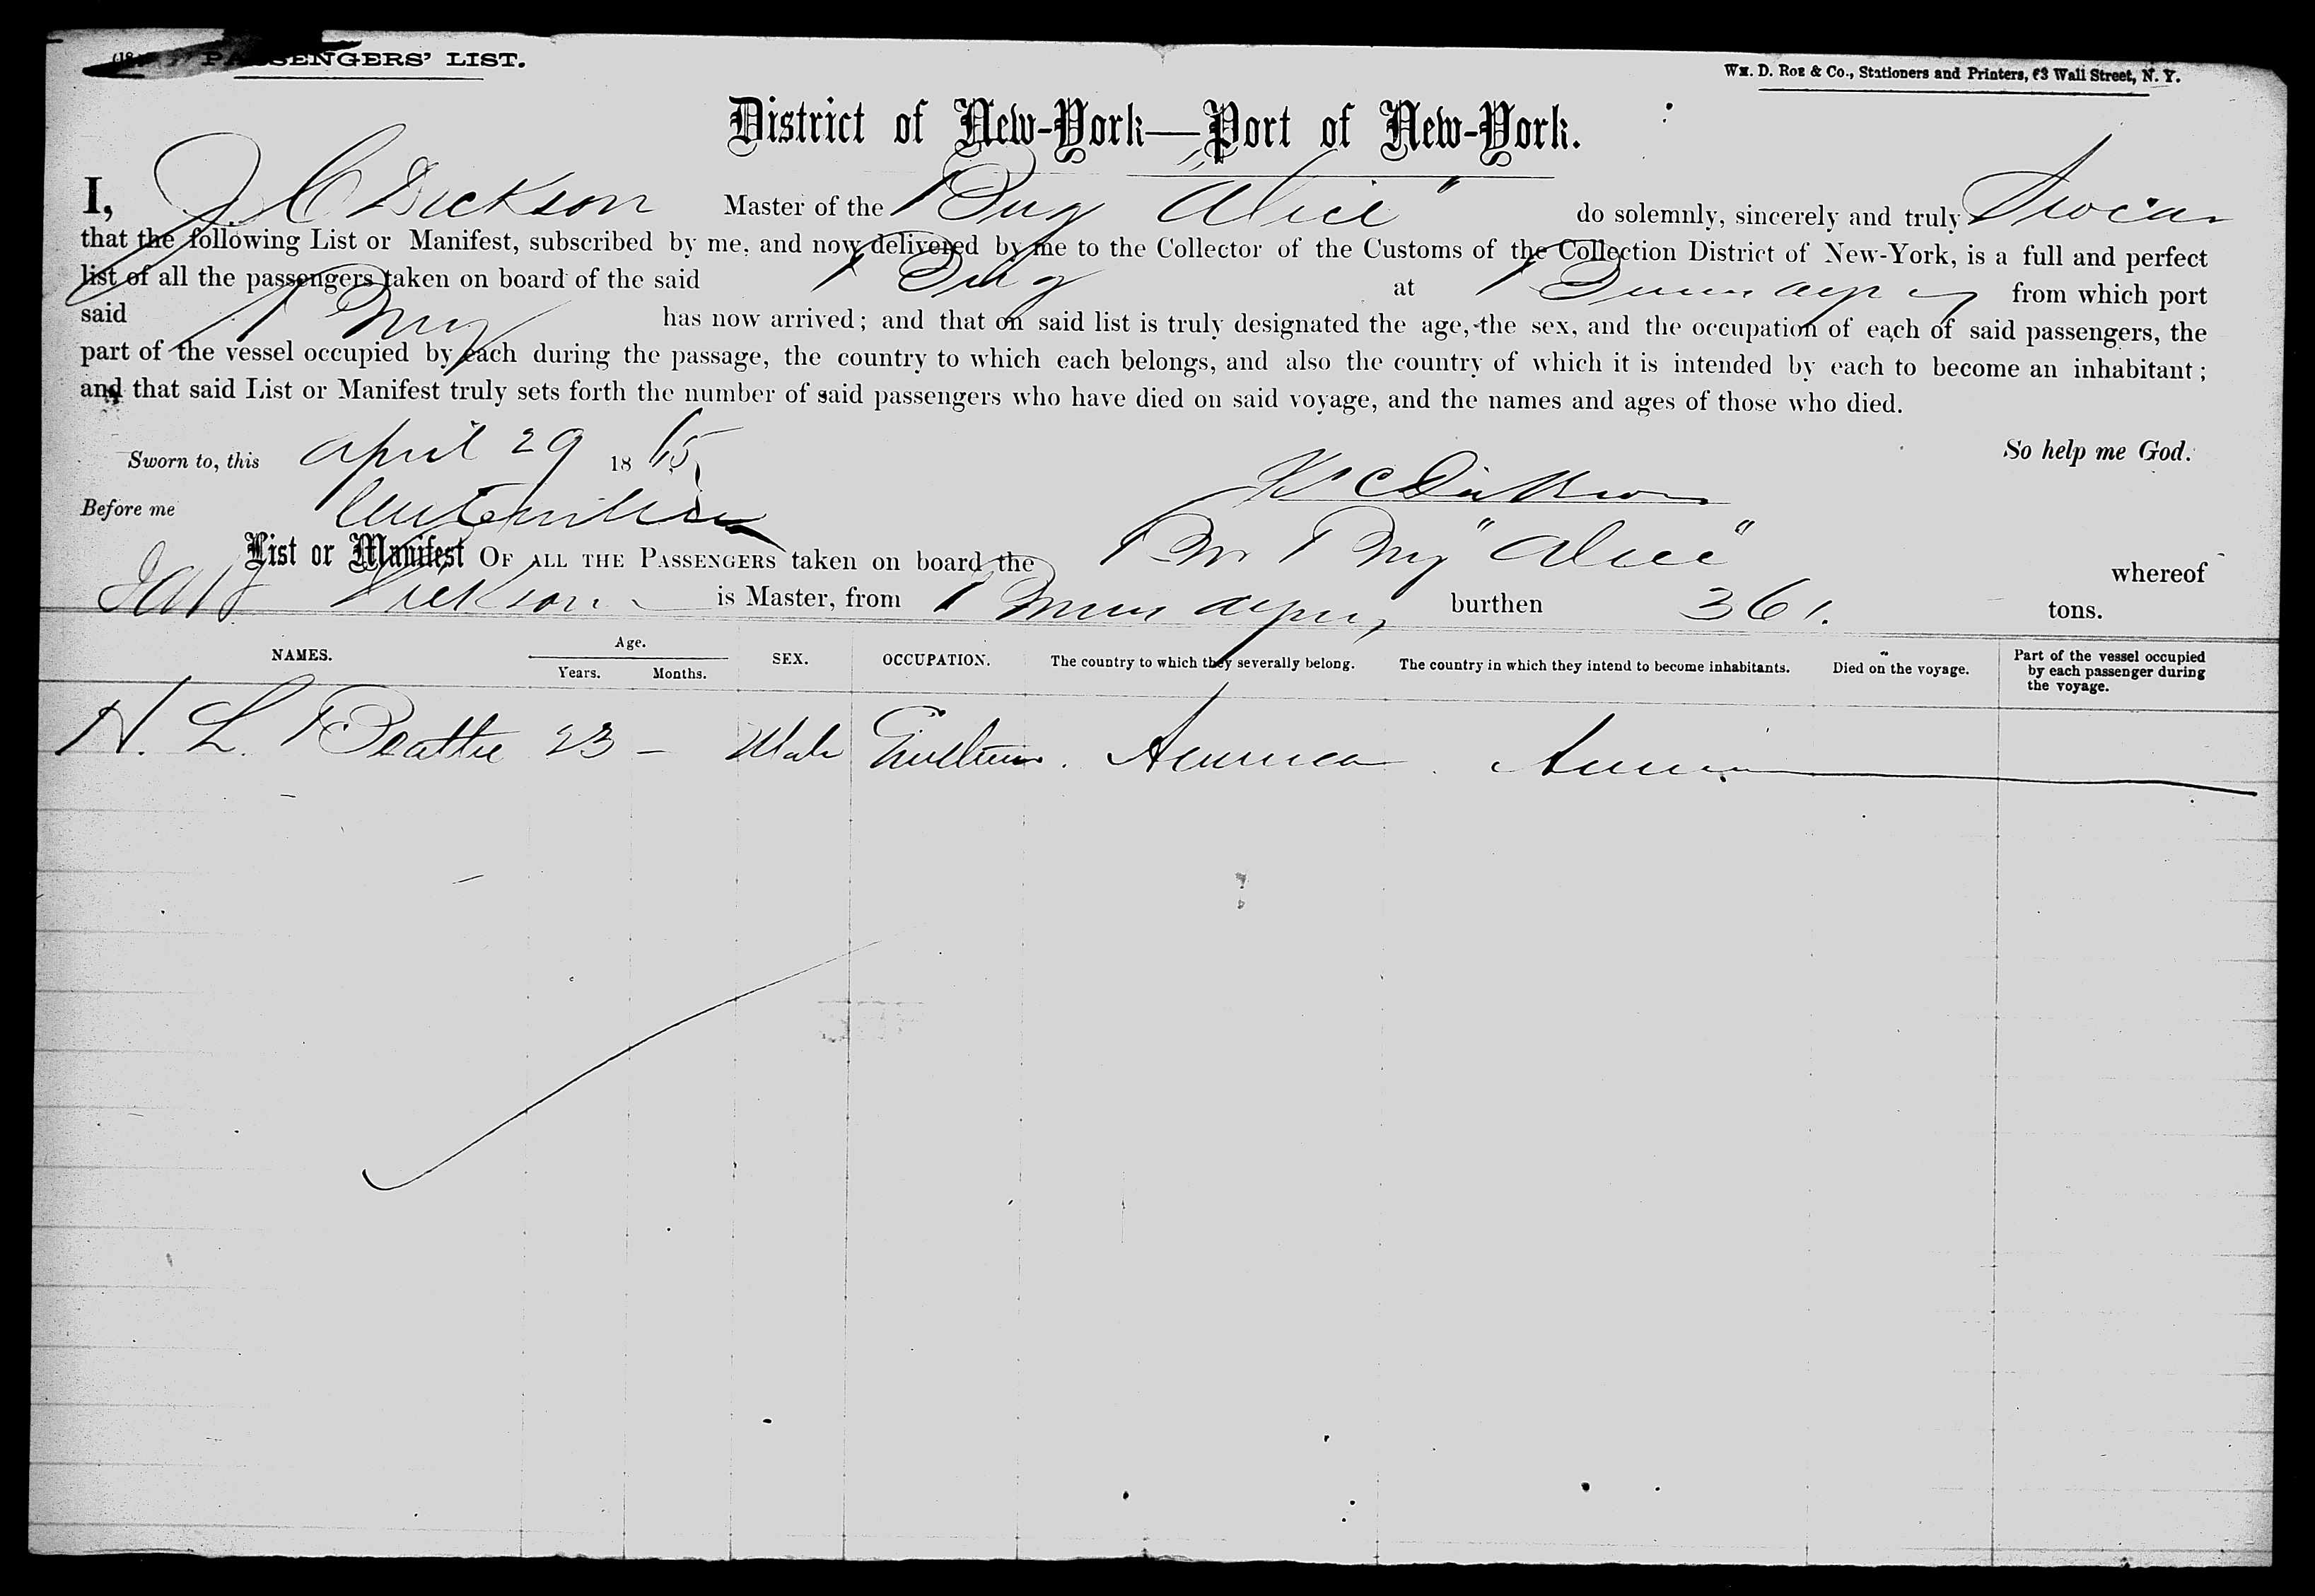 PASSENGERS' LIST.
Wm. D. Roe & Co., Stationers and Printers, 63 Wall Street, N. Y.
District of New-York—Port of New-York.
I, J. C Dickson Master of the Brig Alice" do solemnly, sincerely and truly Swear
that the following List or Manifest, subscribed by me, and now delivered by me to the Collector of the Customs of the Collection District of New-York, is a full and perfect
list of all the passengers taken on board of the said Brig at Buenos Ayres from which port
said Brig has now arrived; and that on said list is truly designated the age, the sex, and the occupation of each of said passengers, the
part of the vessel occupied by each during the passage, the country to which each belongs, and also the country of which it is intended by each to become an inhabitant;
and that said List or Manifest truly sets forth the number of said passengers who have died on said voyage, and the names and ages of those who died.
Sworn to, this April 29 1865 So help me God.
Before me C Dickson
List or Manifest OF ALL THE PASSENGERS taken on board the Br Brig "Alice" whereof
Dickson is Master, from Buenos Ayres, burthen 361. tons.
NAMES. Age. Years. Months. SEX. OCCUPATION. The country to which they severally belong. The country in which they intend to become inhabitants. Died on the voyage. Part of the vessel occupied by each passenger during the voyage.
H. L. Beattie 23 — Male Gentleman. America. America